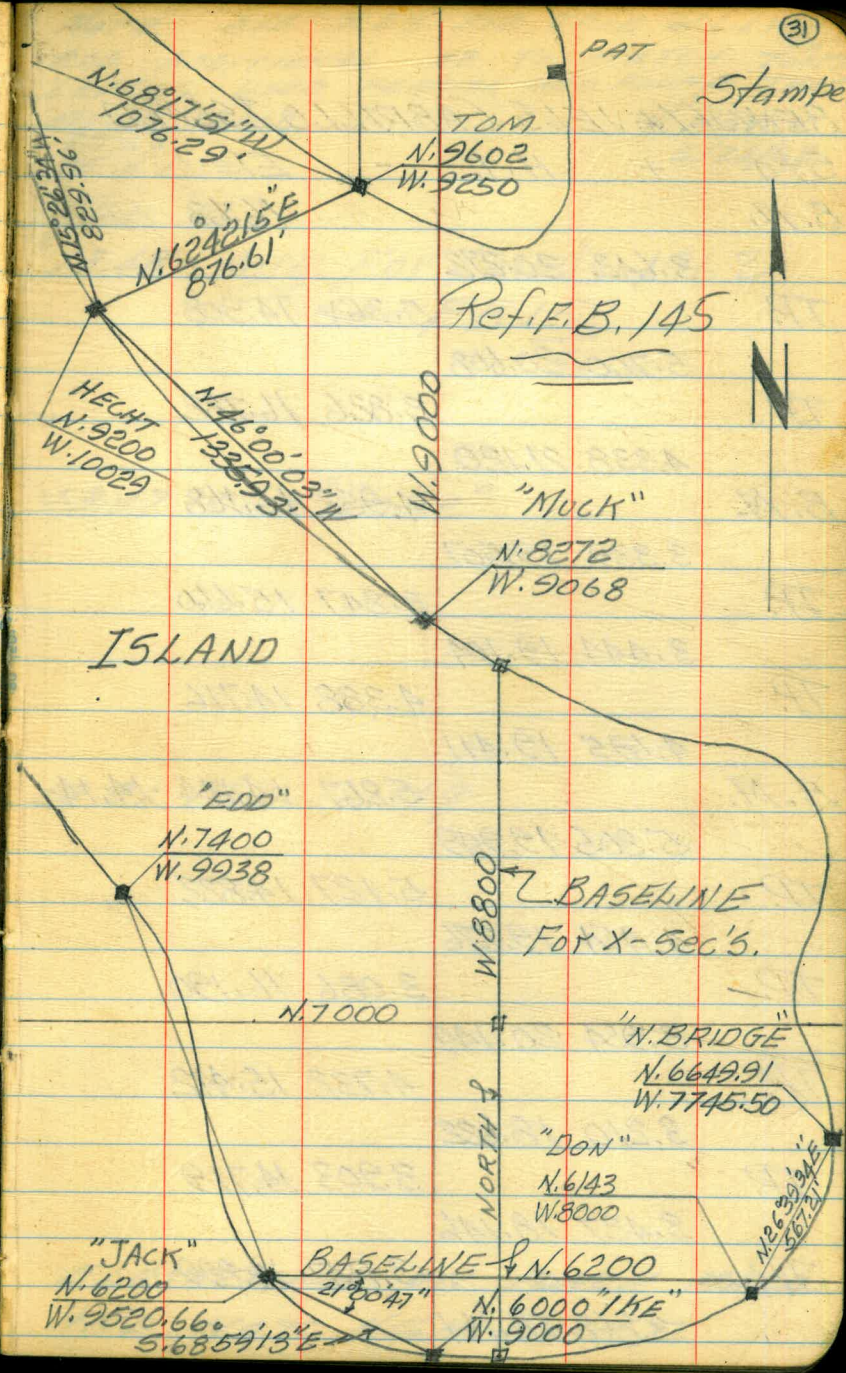 31
PAT
Stampe
N.68°17'51"W
1076.29'
TOM
N.9602
W.9250
N.15°26'34"W
829.96'
N.62°42'15"E
876.61'
Ref. F.B. 145
N
HECHT
N.9200
W.10029
N.46°00'03"W
1335.93'
W.9000
"MUCK"
N.8272
W.9068
ISLAND
"EDD"
N.7400
W.9938
W.8800
BASELINE
For X-Sec's.
N.7000
"N.BRIDGE"
N.6649.91
W.7745.50
NORTH
"DON"
N.6143
W.8000
N.26°39'34"E
567.21'
"JACK"
N.6200
W.9520.66
BASELINE N.6200
21°00'47"
S.68°59'13"E
N.6000 "IKE"
W.9000